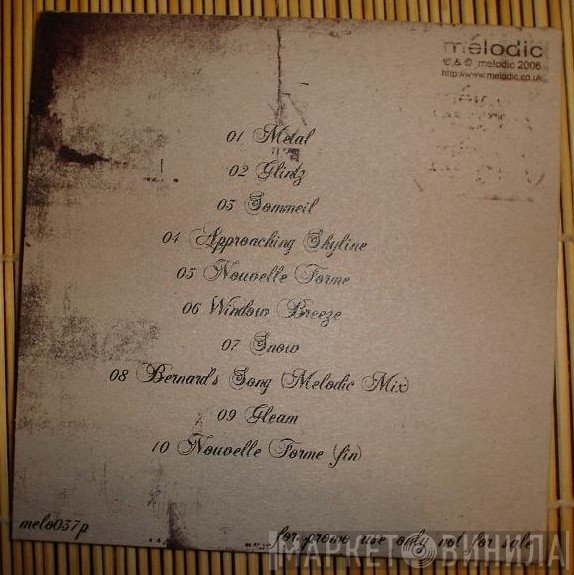 mélodic
℗ & © melodic 2006
http://www.melodic.co.uk
01 Metal
02 Glintz
03 Sommeil
04 Approaching Skyline
05 Nouvelle Forme
06 Window Breeze
07 Snow
08 Bernard's Song (Melodic Mix)
09 Gleam
10 Nouvelle Forme (fin)
melo037p
for promo use only not for sale
МАРКЕТ ВИНИЛА